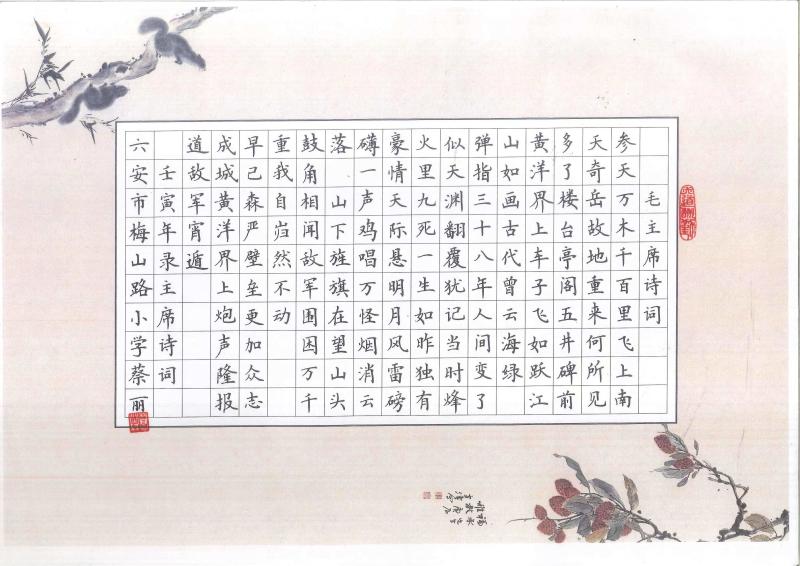 毛主席诗词
参天万木千百里飞上南
天奇岳故地重来何所见
多了楼台亭阁五井碑前
黄洋界上车子飞如跃江
山如画古代曾云海绿
弹指三十八年人间变了
似天渊翻覆犹记当时烽
火里九死一生如昨独有
豪情天际悬明月风雷磅
礴一声鸡唱万怪烟消云
落 山下旌旗在望山头
鼓角相闻敌军围困万千
重我自岿然不动
早已森严壁垒更加众志
成城黄洋界上炮声隆报
道敌军宵遁
壬寅年录主席诗词
六安市梅山路小学蔡丽